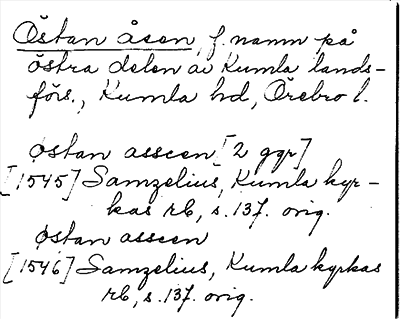 Östan åsen, f. namn på
östra delen av Kumla lands-
förs., Kumla hd, Örebro l.
østan asscen [2 ggr]
[1545] Samzelius, Kumla kyr-
kas rb, s. 137. orig.
østan asscen
[1546] Samzelius, Kumla kyrkas
rb, s. 137. orig.